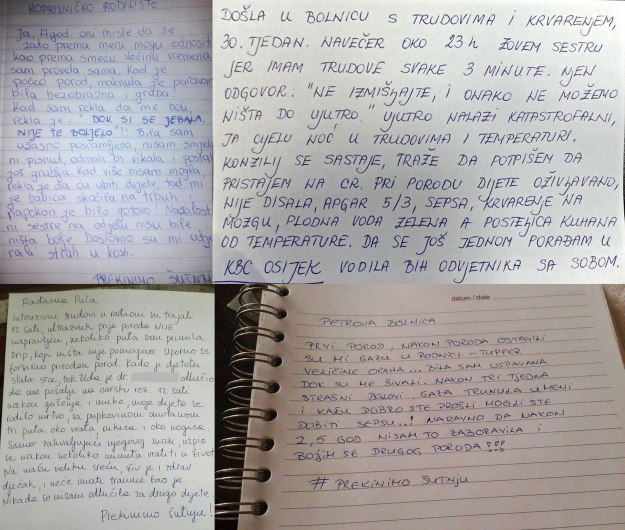 KOPRIVNIČKO RODILIŠTE
Ja, 19god. oni misle da se
zato prema meni mogu odnositi
kao prema smeću. Većinu vremena
sam provela sama. Kad je
počeo porod maknula je paravan
bila bezobrazna i gruba
kad sam rekla da me boli,
rekla je: "DOK SI SE JEBALA
NIJE TE BOLJELO"! Bila sam
užasno posramljena, nisam smjela
ni pisnut, odmah bi vikala i postala
još grublja. Kad više nisam mogla,
rekla je da ću ubit dijete, tad mi
je babica skočila na trbuh i
napokon je bilo gotovo! Nažalost
ni sestre na odjelu nisu bile
ništa bolje. Doslovno su mi utje
rali strah u kosti.
PREKINIMO ŠUTNJU
DOŠLA U BOLNICU S TRUDOVIMA I KRVARENJEM,
30. TJEDAN. NAVEČER OKO 23h ZOVEM SESTRU
JER IMAM TRUDOVE SVAKE 3 MINUTE. NJEN
ODGOVOR: "NE IZMIŠLJAJTE, I ONAKO NE MOŽEMO
NIŠTA DO UJUTRO." UJUTRO NALAZI KATASTROFALNI,
JA CIJELU NOĆ U TRUDOVIMA I TEMPERATURI.
KONZILIJ SE SASTAJE, TRAŽE DA POTPIŠEM DA
PRISTAJEM NA CR. PRI PORODU DIJETE OŽIVLJAVANO,
NIJE DISALA, APGAR 5/3, SEPSA, KRVARENJE NA
MOZGU, PLODNA VODA ZELENA A POSTELJICA KUHANA
OD TEMPERATURE. DA SE JOŠ JEDNOM PORAĐAM U
KBC OSIJEK VODILA BIH ODVJETNIKA SA SOBOM.
Rađaona Pula
Intenzivni trudovi u rađaoni su trajali
12 sati, ultrazvuk prije poroda NIJE
napravljen, nekoliko puta sam primila
drip, koji ništa nije pomogao. Uporno se
forsirao prirodan porod. Kada je djetetu
stalo srce, tek tada je dr. odlučio
da me pošalje na carski rez. 12 sati
nakon gušenja i muke, moje dijete se
rodilo mrtvo, sa pupkovinom omotanom
tri puta oko vrata, ruke i oko nogice.
Samo zahvaljujući njegovoj majci, uspio
se nakon nekoliko minuta vratiti u život
Na našu veliku sreću, živ je i zdrav
dječak, i neće imati traume kao ja.
Nikada se nisam odlučila za drugo dijete
Prekinimo šutnju!
datum / date
PETROVA BOLNICA
PRVI POROD, NAKON PORODA OSTAVILI
SU MI GAZU U RODNICI - TUPFER
VELIČINE ORAHA... BILA SAM USPAVANA
DOK SU ME ŠIVALI. NAKON TRI TJEDNA
STRAŠNI BOLOVI, GAZA TRUNULA U MENI
I KAŽU DOBRO STE PROŠLI MOGLI STE
DOBITI SEPSU...! NARAVNO DA NAKON
2,5 GOD NISAM TO ZABORAVILA I
BOJIM SE DRUGOG PORODA!!!
# PREKINIMO ŠUTNJU